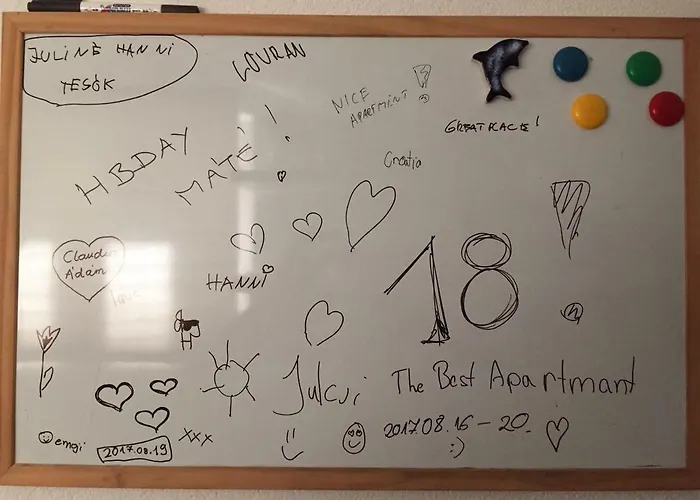 JULINÉ HANNI
TESÓK
LOVRAN
NICE
APARTMENT!
GREAT PLACE!
Croatia
H.B-DAY
MATE!
Claudia
Ádám
HANNI
18
Julcsi
The Best Apartmant
emoji
2017.08.19
XXX
2017.08.16-20.
:)